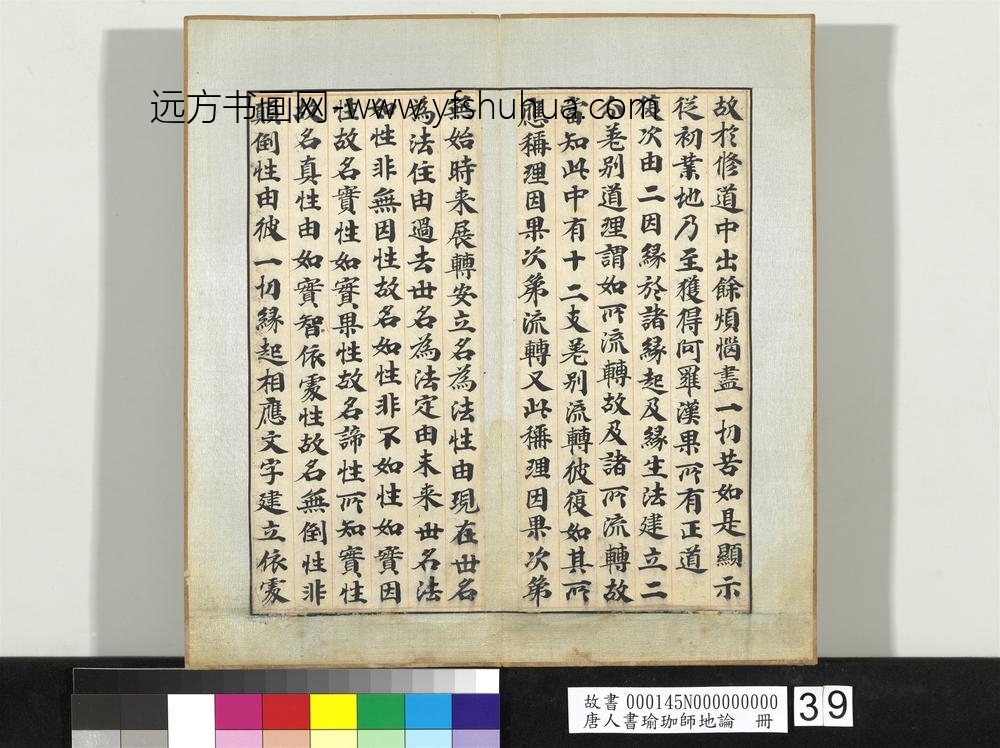 远方书画网-www.yfshuhua.com
故於修道中出餘煩惱盡一切苦如是顯示
從初業地乃至獲得阿羅漢果所有正道
復次由二因緣於諸緣起及緣生法建立二
差別道理謂如所流轉故及諸所流轉故
當知此中有十二支差別流轉彼復如其所
應稱理因果次第流轉又此稱理因果次第
無始時来展轉安立名為法性由現在世名
為法住由過去世名為法定由未来世名法
如性非無因性故名如性非不如性如實因
性故名實性如實果性故名諦性所知實性
名真性由如實智依處性故名無倒性非
顛倒性由彼一切緣起相應文字建立依處
故書 000145N000000000
唐人書瑜珈師地論 冊
39